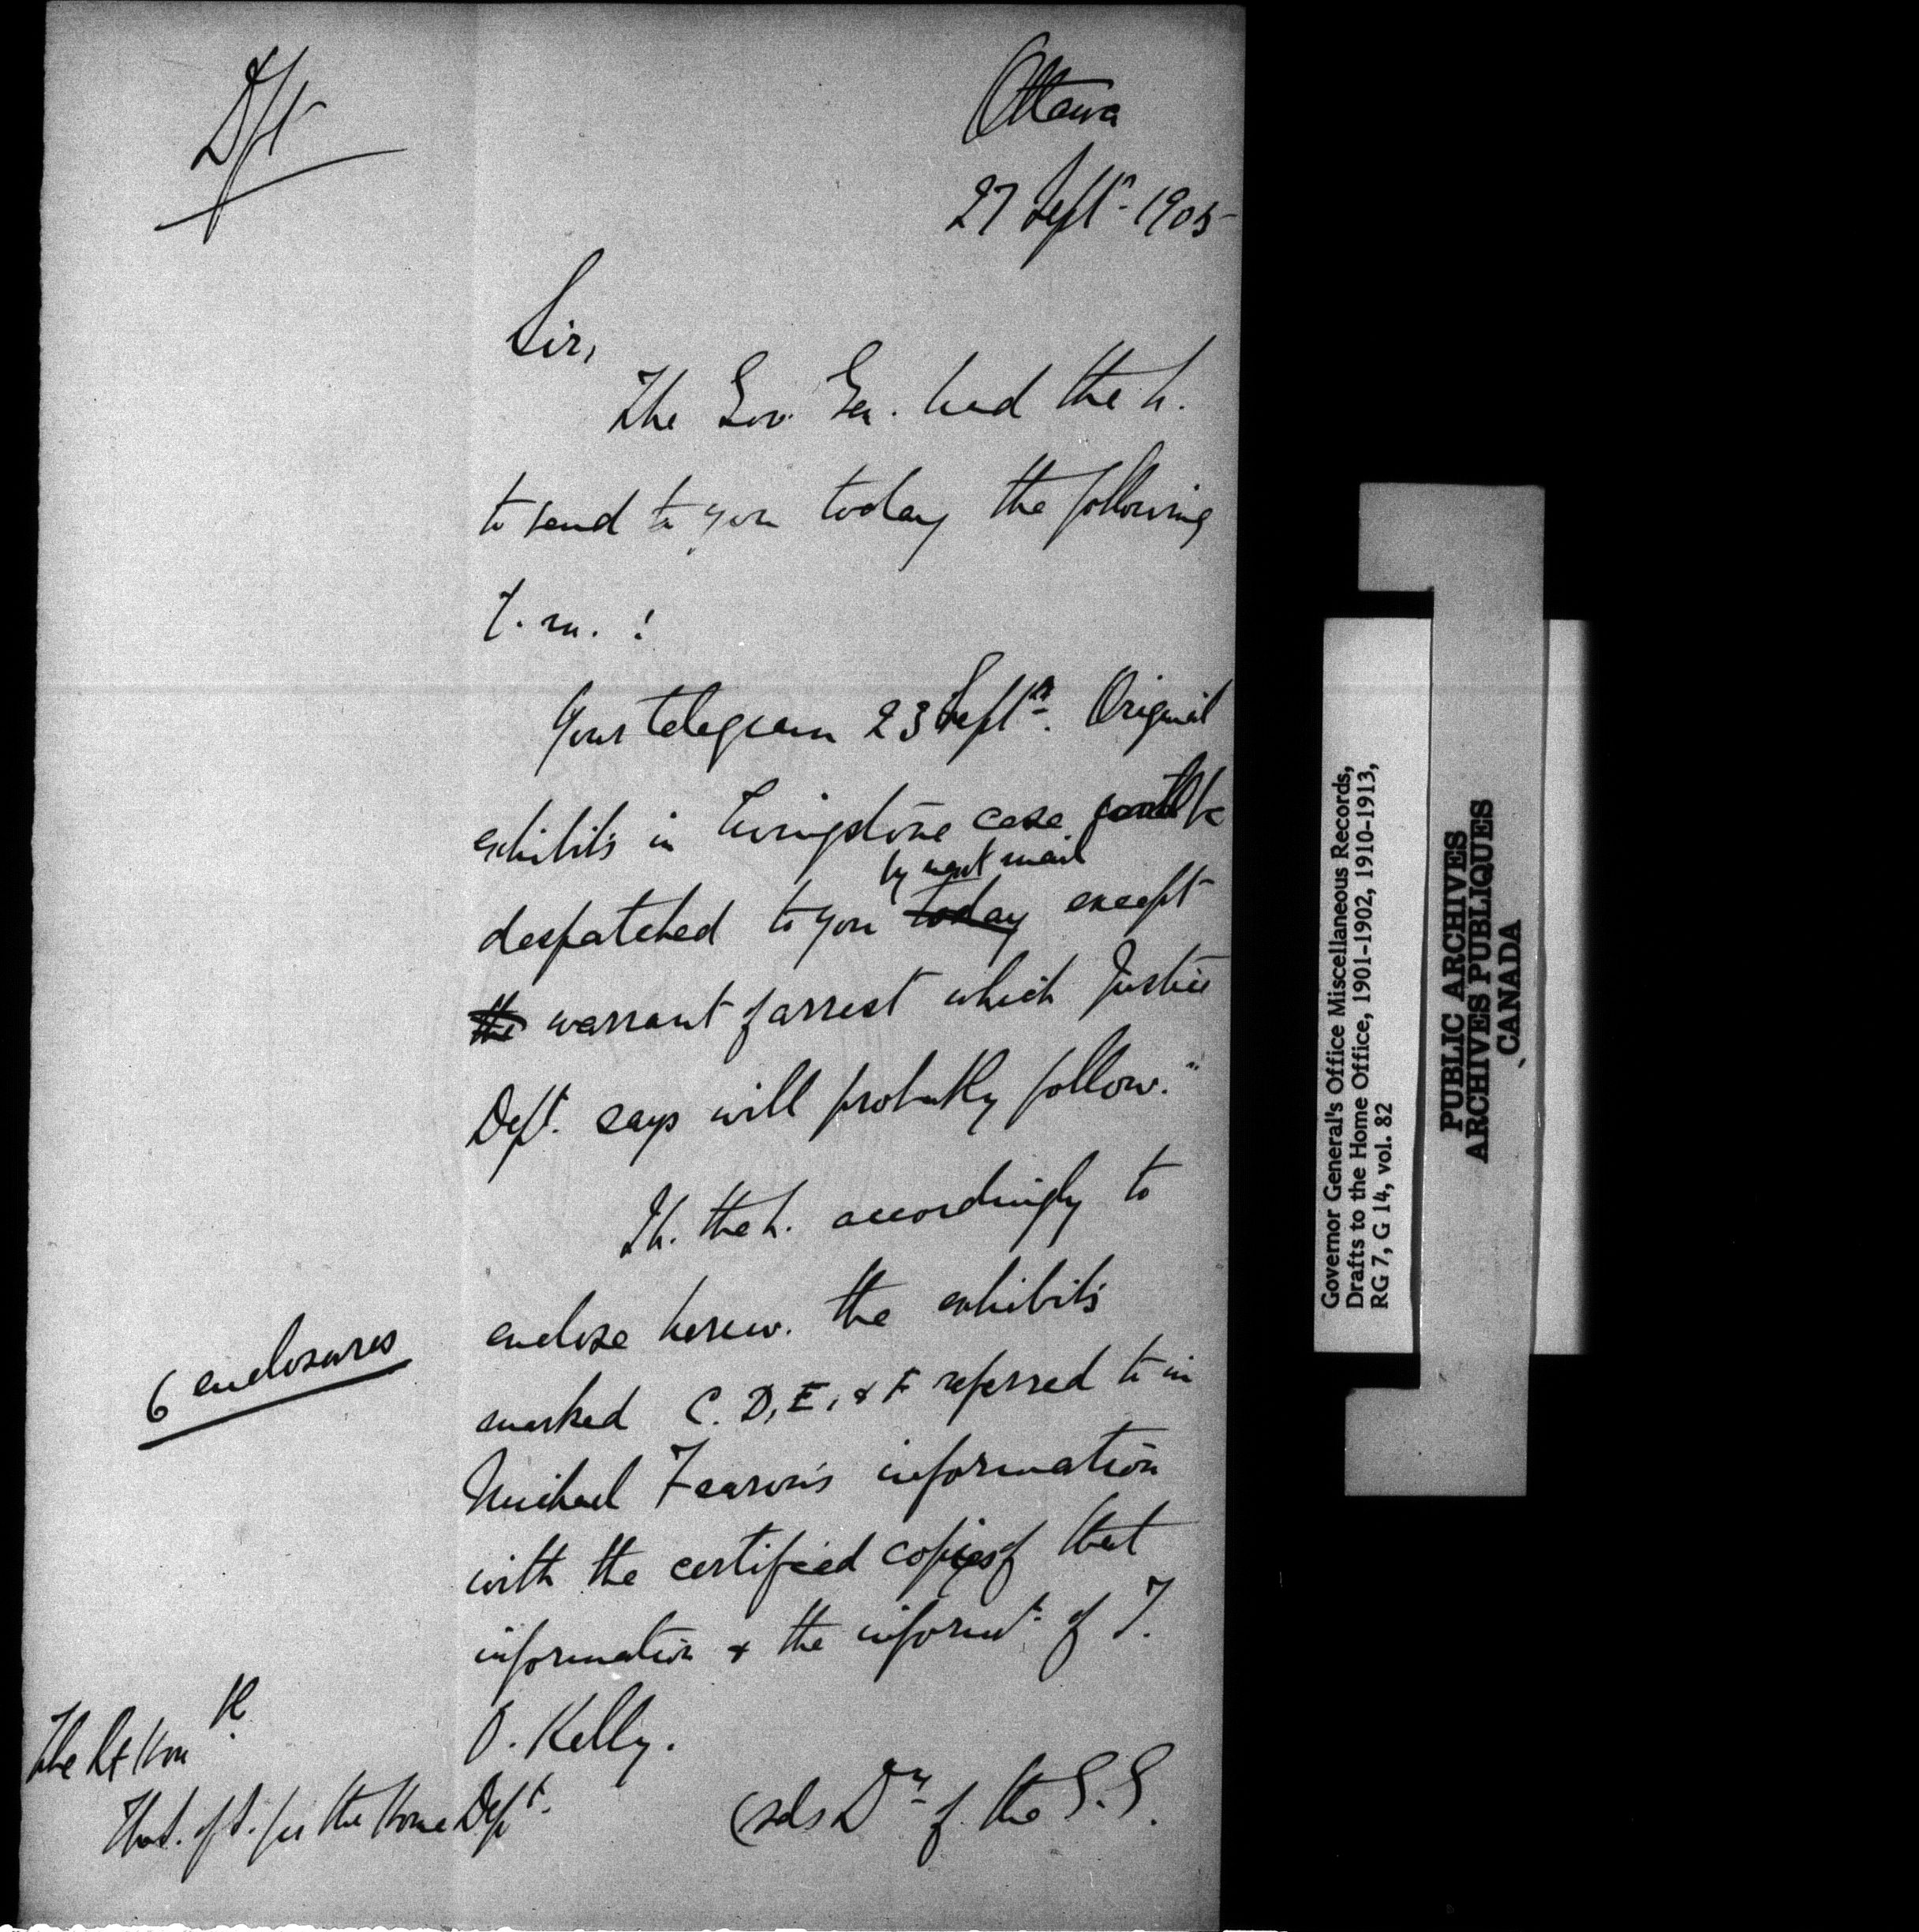 Dft
Ottawa
27 Septr. 1905
Sir,
The Gov. Gen. had the h.
to send to you today the following
t.m. :
Your telegram 23 Septr. Original
exhibits in Livingstone case will be
by next mail
despatched to you today except
the warrant of arrest which Justice
Dept. says will probably follow."
I h. the h. accordingly to
enclose herew. the exhibits
6 enclosures
marked C. D, E, & F referred to in
Michael Fearon's information
with the certified copies of that
information & the informt. of T.
O. Kelly.
The Rt Hon
The S. of S. for the Home Dept.
(sds Dy of the G.G.
Governor General's Office Miscellaneous Records,
Drafts to the Home Office, 1901-1902, 1910-1913,
RG 7, G 14, vol. 82
PUBLIC ARCHIVES
ARCHIVES PUBLIQUES
CANADA